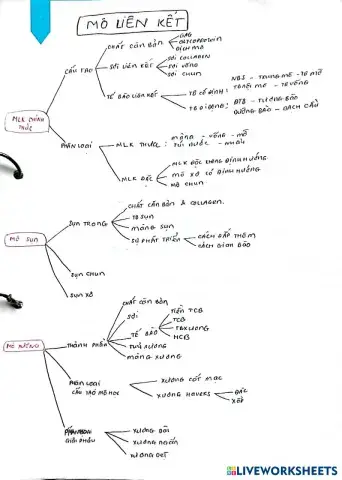 MÔ LIÊN KẾT
MLK CHÍNH THỨC
CẤU TẠO
CHẤT CĂN BẢN
GAG
GLYCOPROTEIN
DỊCH MÔ
SỢI LIÊN KẾT
SỢI COLLAGEN
SỢI VÕNG
SỢI CHUN
TẾ BÀO LIÊN KẾT
TB CỐ ĐỊNH:
NBS - TRUNG MÔ - TB MỠ
TB NỘI MÔ - TB VÕNG
TB DI ĐỘNG:
ĐTB - TƯƠNG BÀO
DƯỠNG BÀO - BẠCH CẦU
PHÂN LOẠI
MLK THƯA:
MÀNG - VÕNG - MỠ
TÚI NƯỚC - NHẦY
MLK ĐẶC
MLK ĐẶC KHÔNG ĐỊNH HƯỚNG
MÔ XƠ CÓ ĐỊNH HƯỚNG
MÔ CHUN
MÔ SỤN
SỤN TRONG
CHẤT CĂN BẢN & COLLAGEN
TB SỤN
MÀNG SỤN
SỰ PHÁT TRIỂN
CÁCH ĐẮP THÊM
CÁCH GIAN BÀO
SỤN CHUN
SỤN XƠ
MÔ XƯƠNG
THÀNH PHẦN
CHẤT CĂN BẢN
SỢI
TẾ BÀO
TIỀN TCB
TCB
TBXƯƠNG
HCB
TUỶ XƯƠNG
MÀNG XƯƠNG
PHÂN LOẠI
CẤU TẠO MÔ HỌC
XƯƠNG CỐT MẠC
XƯƠNG HAVERS
ĐẶC
XỐP
GIẢI PHẪU
XƯƠNG DÀI
XƯƠNG NGẮN
XƯƠNG DẸT
LIVEWORKSHEETS